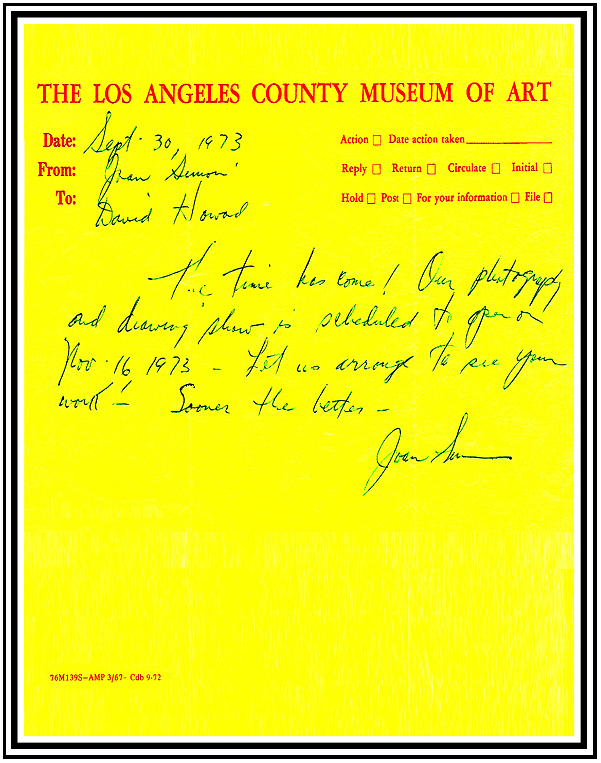 THE LOS ANGELES COUNTY MUSEUM OF ART
Date: Sept. 30, 1973
Action □ Date action taken
From: Joan Simon
Reply □ Return □ Circulate □ Initial □
To: David Howad
Hold □ Post □ For your information □ File □
The time has come! Our photography
and drawing show is scheduled to open on
Nov. 16 1973 – Let us arrange to see your
work! – Sooner the better –
Joan
76M139S–AMP 3/67- Cdb 9-72